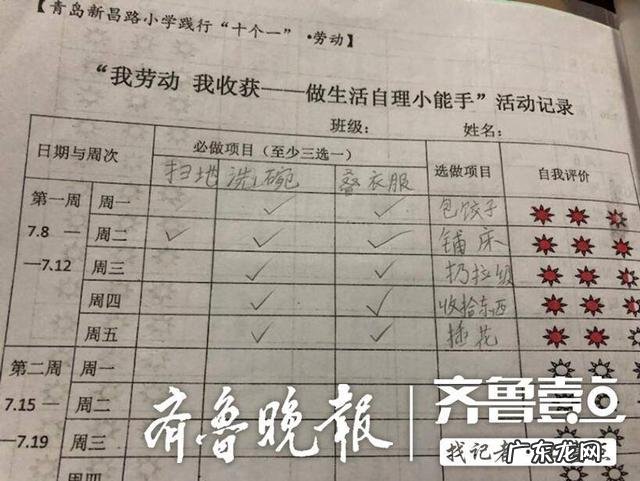 【青岛新昌路小学践行“十个一”·劳动】
“我劳动 我收获——做生活自理小能手”活动记录
班级： 姓名：
日期与周次 必做项目（至少三选一） 选做项目 自我评价
扫地 洗碗 叠衣服
第一周 周一 ✓ ✓ 包饺子
7.8 — 周二 ✓ ✓ ✓ 铺床
—7.12 周三 ✓ ✓ 扔垃圾
周四 ✓ ✓ 收拾东西
周五 ✓ ✓ 插花
第二周 周一
7.15 — 周二
—7.19 周三
周四
齐鲁晚报 齐鲁壹点
找记者
广东龙网